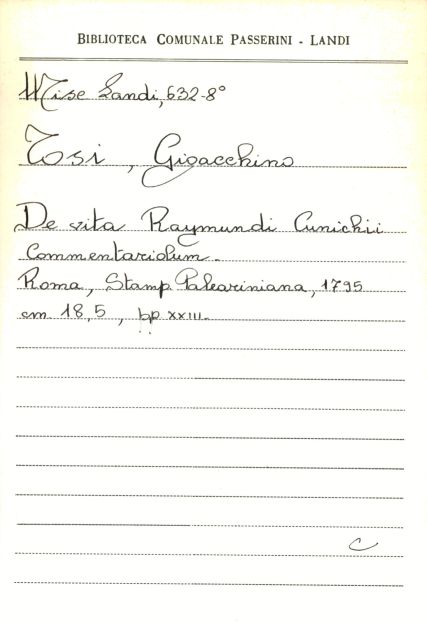 BIBLIOTECA COMUNALE PASSERINI - LANDI
Misc Landi, 632-8°
Tosi, Gioacchino
De vita Raymundi Cunichii
Commentariolum.
Roma, Stamp Paleariniana, 1795
cm 18,5, pp XXIII.
C